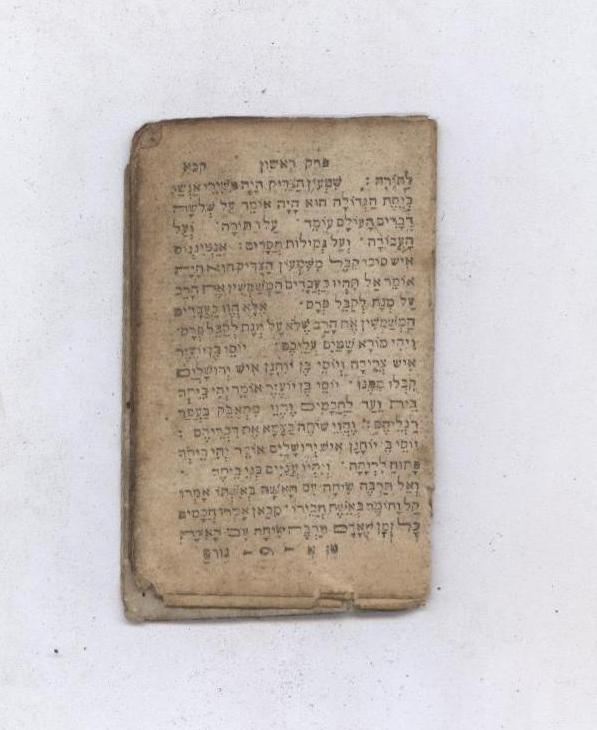 פרק ראשון קכא
לתורה: שמעון הצדיק היה משירי אנשי
כנסת הגדולה הוא היה אומר על שלשה
דברים העולם עומד על התורה ועל
העבודה ועל גמילות חסדים: אנטיגנוס
איש סוכו קבל משמעון הצדיק הוא היה
אומר אל תהיו כעבדים המשמשין את הרב
על מנת לקבל פרס אלא הוו כעבדים
המשמשין את הרב שלא על מנת לקבל פרס
ויהי מורא שמים עליכם יוסי בן יועזר
איש צרידה ויוסי בן יוחנן איש ירושלים
קבלו ממנו יוסי בן יועזר אומר יהי ביתך
בית ועד לחכמים והוי מתאבק בעפר
רגליהם והוי שותה בצמא את דבריהם:
יוסי בן יוחנן איש ירושלים אומר יהי ביתך
פתוח לרוחה ויהיו עניים בני ביתך
ואל תרבה שיחה עם האשה באשתו אמרו
קל וחומר באשת חבירו מכאן אמרו חכמים
כל זמן שאדם מרבה שיחה עם האשה
גורם